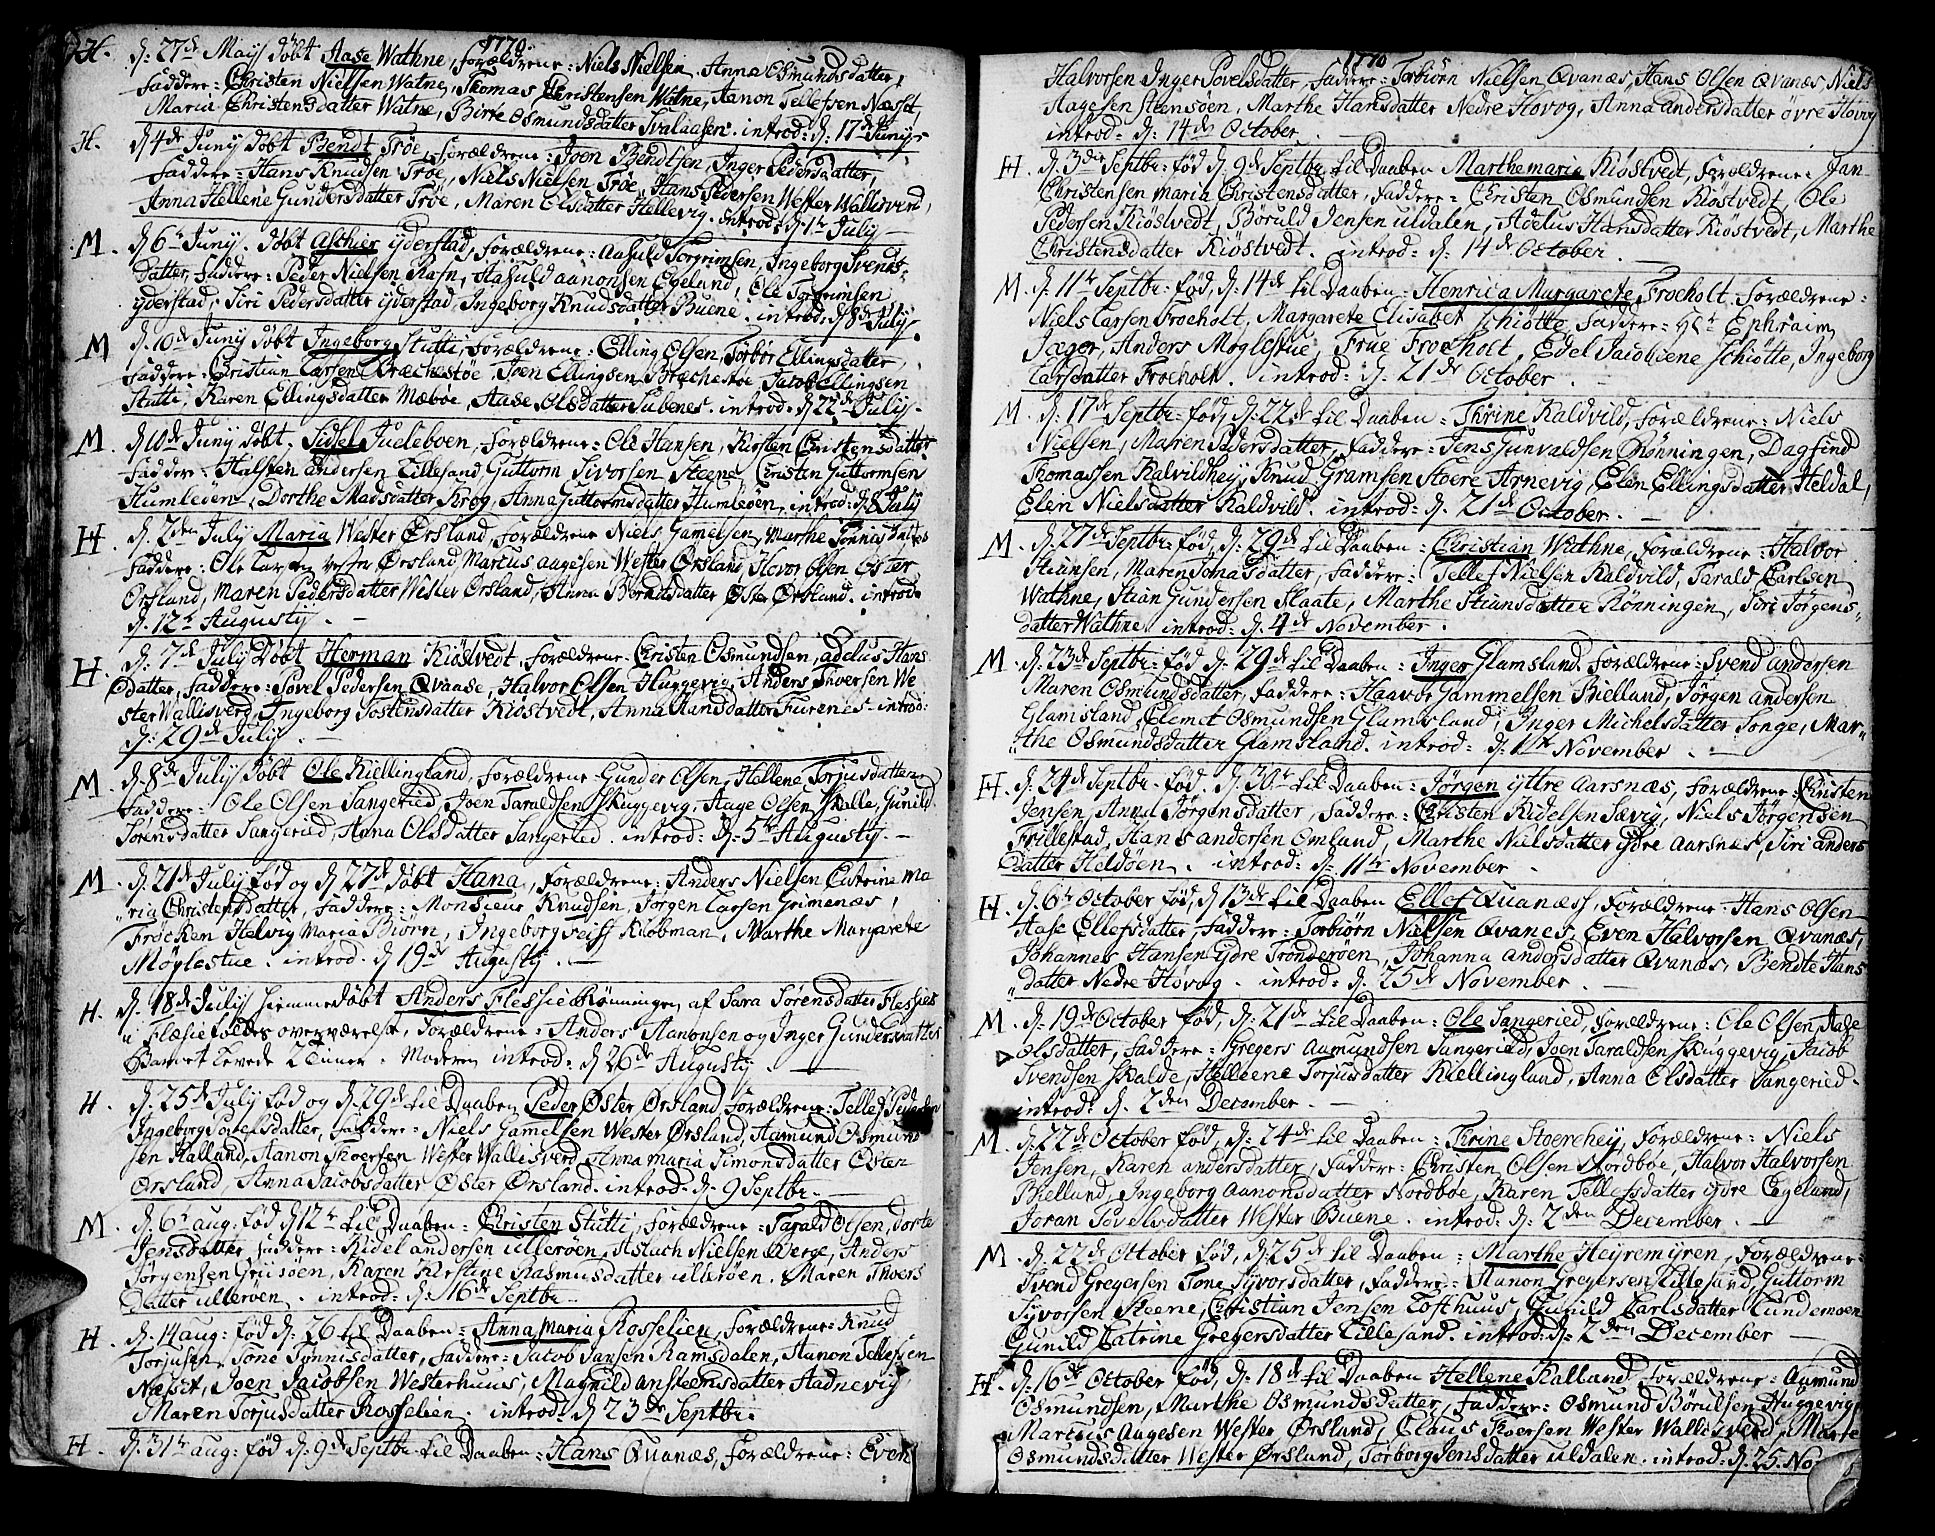 1770.
H. d. 27de Maÿ døbt Aase Wathne, forældrene: Niels Nielsen, Anna Osmundsdatter,
Faddere: Christen Nielsen Watne, Thomas Christensen Watne, Aanon Tellefsen Næsset,
Maria Christensdatter Watne, Birte Osmundsdatter Svalaasen. introd: d. 17de Junÿ.
H. d. 4de Junÿ døbt Bendt Trøe, forældrene: Joen Bendtsen, Inger Pedersdatter,
Faddere: Hans Knudsen Trøe, Niels Nielsen Trøe, Hans Pedersen Wester Wallisverd,
Anna Hellene Gundersdatter Trøe, Maren Olsdatter Hellevig. introd: d. 1te Julÿ
M. d. 6te Junÿ. døbt Aschier ÿderstad, forældrene: Aasuld Torgrimsen, Ingeborg Svends-
datter, Faddere: Peder Nielsen Rafn, Hasuld Aanonsen Egelund, Ole Torgrimsen
ÿderstad, Siri Pedersdatter ÿderstad, Ingeborg Knudsdatter Buene. introd: d. 8de Julÿ.
M d. 10de Junÿ døbt Ingeborg Stutti, forældrene: Elling Olsen, Torbor Ellingsdatter,
Faddere: Christian Larsen Bræchestøe, Joen Ellingsen Bræchestøe, Jacob Ellingsen
Stutti, Karen Ellingsdatter Mæbøe, Aase Olsdatter Subenes. introd: d. 22de Julÿ.
M. d. 10de Junÿ døbt. Sidsel Jueleboen, forældrene: Ole Hansen, Kirsten Christensdatter
Faddere: Halsten Andersen Lillesand, Guttorm Sivorsen Steene, Christen Guttormsen
Humleøen, Dorthe Madsdatter Krog, Anna Guttormsdatter Humleøen, introd: d. 8 Julÿ
H d. 2den Julÿ Maria Wester Ørsland, forældrene Niels Gamelsen, Marthe Tønnis datter
Faddere: Ole Larsen Vester Ørsland, Marcus Aagesen Wester Ørsland, Hovor Olsen Oster
Ørsland, Maren Pedersdatter Wester Ørsland, Anna Berndtsdatter Øster Ørsland. introd:
d. 12te Augustÿ.
H. d. 7de Julÿ Døbt Herman Kiöstvedt, forældrene. Christen Osmundsen, Adelus Hans
datter, Faddere: Povel Pedersen Qvaase, Halvor Olsen Huggevig, Anders Thversen We
ster Wallisverd, Ingeborg Jostensdatter Kiöstvedt, Anna Hansdatter Furenes introd:
d. 29de Julÿ.
M d. 8de Julÿ døbt Ole Kiellingland, forældrene Gunder Olsen, Hellene Torjusdatter
Faddere: Ole Olsen Sangeried, Joen Taraldsen Skuggevig, Aage Olsen Skalle, Gunild
Torensdatter Sangeried, Anna Olsdatter Sangeried. introd: d. 5te Augustÿ.
M. d. 21de Julÿ fød og d. 27de døbt Hana, forældrene: Anders Nielsen Cistrine Ma
ria Christensdatter, Faddere: Monsieur Knudsen, Jørgen Larsen Grimenæs,
Frøcken Helvig Maria Biørn, Ingeborg Feiff Kiöbman, Marthe Margarete
Møglestue. introd: d 19de Augustÿ.
H. d. 18de Julÿ hiemmedøbt Anders Flessie Rønningen af Sara Sørensdatter Flessies
i Flæsie foldes overværelse, forældrene: Anders Aanonsen og Inger Gundersdatter
Barnet levede 2 timer. Moderen introd: d. 26de Augustÿ.
H. d. 25de Julÿ fød og d. 29de til Daaben Peder Øster Ørsland, forældrene: Tellef Pedersen
Ingeborg Tolefsdatter, Faddere: Niels Gamelsen Wester Ørsland, Aamund Osmund
sen Kalland, Aanon Thoersen Wester Wallisverd, Anna Maria Simonsdatter Østen
Ørsland, Anna Jacobsdatter Øster Ørsland. introd: d. 9 Septbr.
M. d. 6te aug: fød d. 12te til Daaben: Christen Stutti, forældrene: Tarald Olsen, Dorte
Jensdatter, Faddere: Kidel Andersen Ullerøen, Aslach Nielsen Berge, Anders
Jørgensen Griisöen, Karen Kirstine Rasmusdatter Ullerøen, Maren Thoers
datter Ulleroen. introd: d. 16de Septbr.
H d. 14 aug: fød d: 26 til Daaben: Anna Maria Rosselien, forældrene: Knud
Torjusen, Tone Tønnisdatter, Faddere: Jacob Jansen Ramsdalen, Aanon Tellefsen
Næset, Joen Jacobsen Westerhuus, Magnild Ansteensdatter Hadnevig,
Maren Torjusdatter Rosselien. introd: d 23de Septbr.
H. d. 31te aug: fød d. 9de Septbr. til Daaben: Hans Qvanæs, forældrene: Even
1770
Halvorsen Inger Povelsdatter, Faddere: Torbiörn Nielsen Qvanæs, Hans Olsen Qvanæs, Niels
Aagesen Steensöen, Marthe Hansdatter Nedre Hovog, Anna Andersdatter övre Hovog
introd: d. 14de October.
H. d. 3die Septbr. fød d. 9de Septbr. til Daaben Marthemaria Kiöstvedt, forældrene: Jan
Christensen Maria Christensdatter, Faddere: Christen Osmundsen Kiöstvedt, Ole
Pedersen Kiöstvedt, Böruld Jensen Uldalen, Adelus Hansdatter Kiöstvedt, Marthe
Christensdatter Kiöstvedt. introd: d. 14de October.
M d. 11te Septbr: fød, d: 14de til Daaben: Henrica Margarete Froeholt, forældrene:
Niels Larsen Froeholt, Margarete Elisabet Schiötte, Faddere: Hr Ephraim
Jæger, Anders Møglestue, Frue Froeholt, Edel Jacobiene Schiötte, Ingeborg
Larsdatter Froeholt. introd: d. 21de October.
M. d: 17de Septbr: fød, d: 22de til Daaben: Thrine Kaldvild, forældrene: Niels
Nielsen, Maren Pedersdatter, Faddere: Jens Junvaldsen Rönningen, Dagfind
Thomassen Kalvildhey, Knud Gramsen Stoere Arnevig, Elen Ellingsdatter Heldal,
Elen Nielsdatter Kaldvild. introd: d. 21de October.
M. d. 27de Septbr: fød, d: 29de til Daaben: Christian Wathne, forældrene: Halvor
Hansen, Maren Jonasdatter, Faddere: Tellef Nielsen Kaldvild, Tarald Carlsen
Wathne, Stian Gundersen Slaate, Marthe Stiansdatter Rönningen, Siri Jörgens-
datter Wathne. introd: d. 4de November.
M d: 23de Septbr: fød d: 29de til Daaben: Inger Glamsland. forældrene: Svend Andersen
Maren Osmundsdatter, Faddere: Haavor Gammelsen Bielland, Jörgen Andersen
Glamsland, Clemet Osmundsen Glamsland, Inger Michelsdatter Tonge, Mar-
the Osmundsdatter Glamsland. introd: d. 11te November.
H. d. 24de Septbr. fød. d. 30te til Daaben: Jörgen ÿttre Aarsnæs, forældrene: Christen
Jensen, Anna Jörgensdatter, Faddere: Christen Kidelsen Sævig, Niels Jörgensen
Frillestad, Hans Andersen Omlund, Marthe Nielsdatter ÿdre Aarsnæs, Siri Anders
datter Heldöen. introd: d. 11te November.
H. d. 6te October fød, d 13de til Daaben Ellef Quanæss, forældrene: Hans Olsen
Aase Ellefsdatter, Faddere: Torbiörn Nielsen Qvanes, Even Halvorsen Qvanæs,
Johannes Hansen ÿdre Tronderöen, Johanna Andersdatter Qvanæs, Bendte Hans
datter Nedre Hovog. introd: d. 25de November.
M. d: 19de October fød, d: 21de til Daaben: Ole Sangeried, forældrene: Ole Olsen, Aase
Olsdatter, Faddere: Gregers Aamundsen Sangerield, Joen Taraldsen Skuggevig, Jacob
Svendsen Skalde, Helleene Torjusdatter Kiellingland, Anna Olsdatter Sangeried.
introd: d. 2den December.
M. d: 22de October fød, d: 24de til Daaben: Thrine Stoerehey, forældrene: Niels
Jensen, Karen Andersdatter, Faddere: Christen Olsen Nordböe, Halvor Halvorsen
Bielland, Ingeborg Aanonsdatter Nordböe, Karen Tellefsdatter ÿdre Egeland,
Joran Povelsdatter Wester Buene. introd: d: 2den December.
M d: 22de October fød, d: 25de til Daaben: Marthe Heyremyren, forældrene:
Svend Gregersen Tone Syvorsdatter, Faddere: Aanon Gregersen Lillesand, Guttorm
Syvorsen Steene, Christian Jensen Tofthuus, Gunild Carlsdatter Lundemoen
Gunild Catrine Gregersdatter Lillesand. introd: d: 2den December
H. d: 16de October fød, d: 18de til Daaben Hellene Kalland, forældrene: Aamund
Osmundsen, Marthe Osmundsdatter, Faddere: Osmund Börulsen Huggevig,
Marcus Augesen Wester Ørsland, Claus Thoersen Wester Wallisverd, Marte
Osmundsdatter Wester Ørsland, Torborg Jensdatter Uldalen. introd: d. 25. No